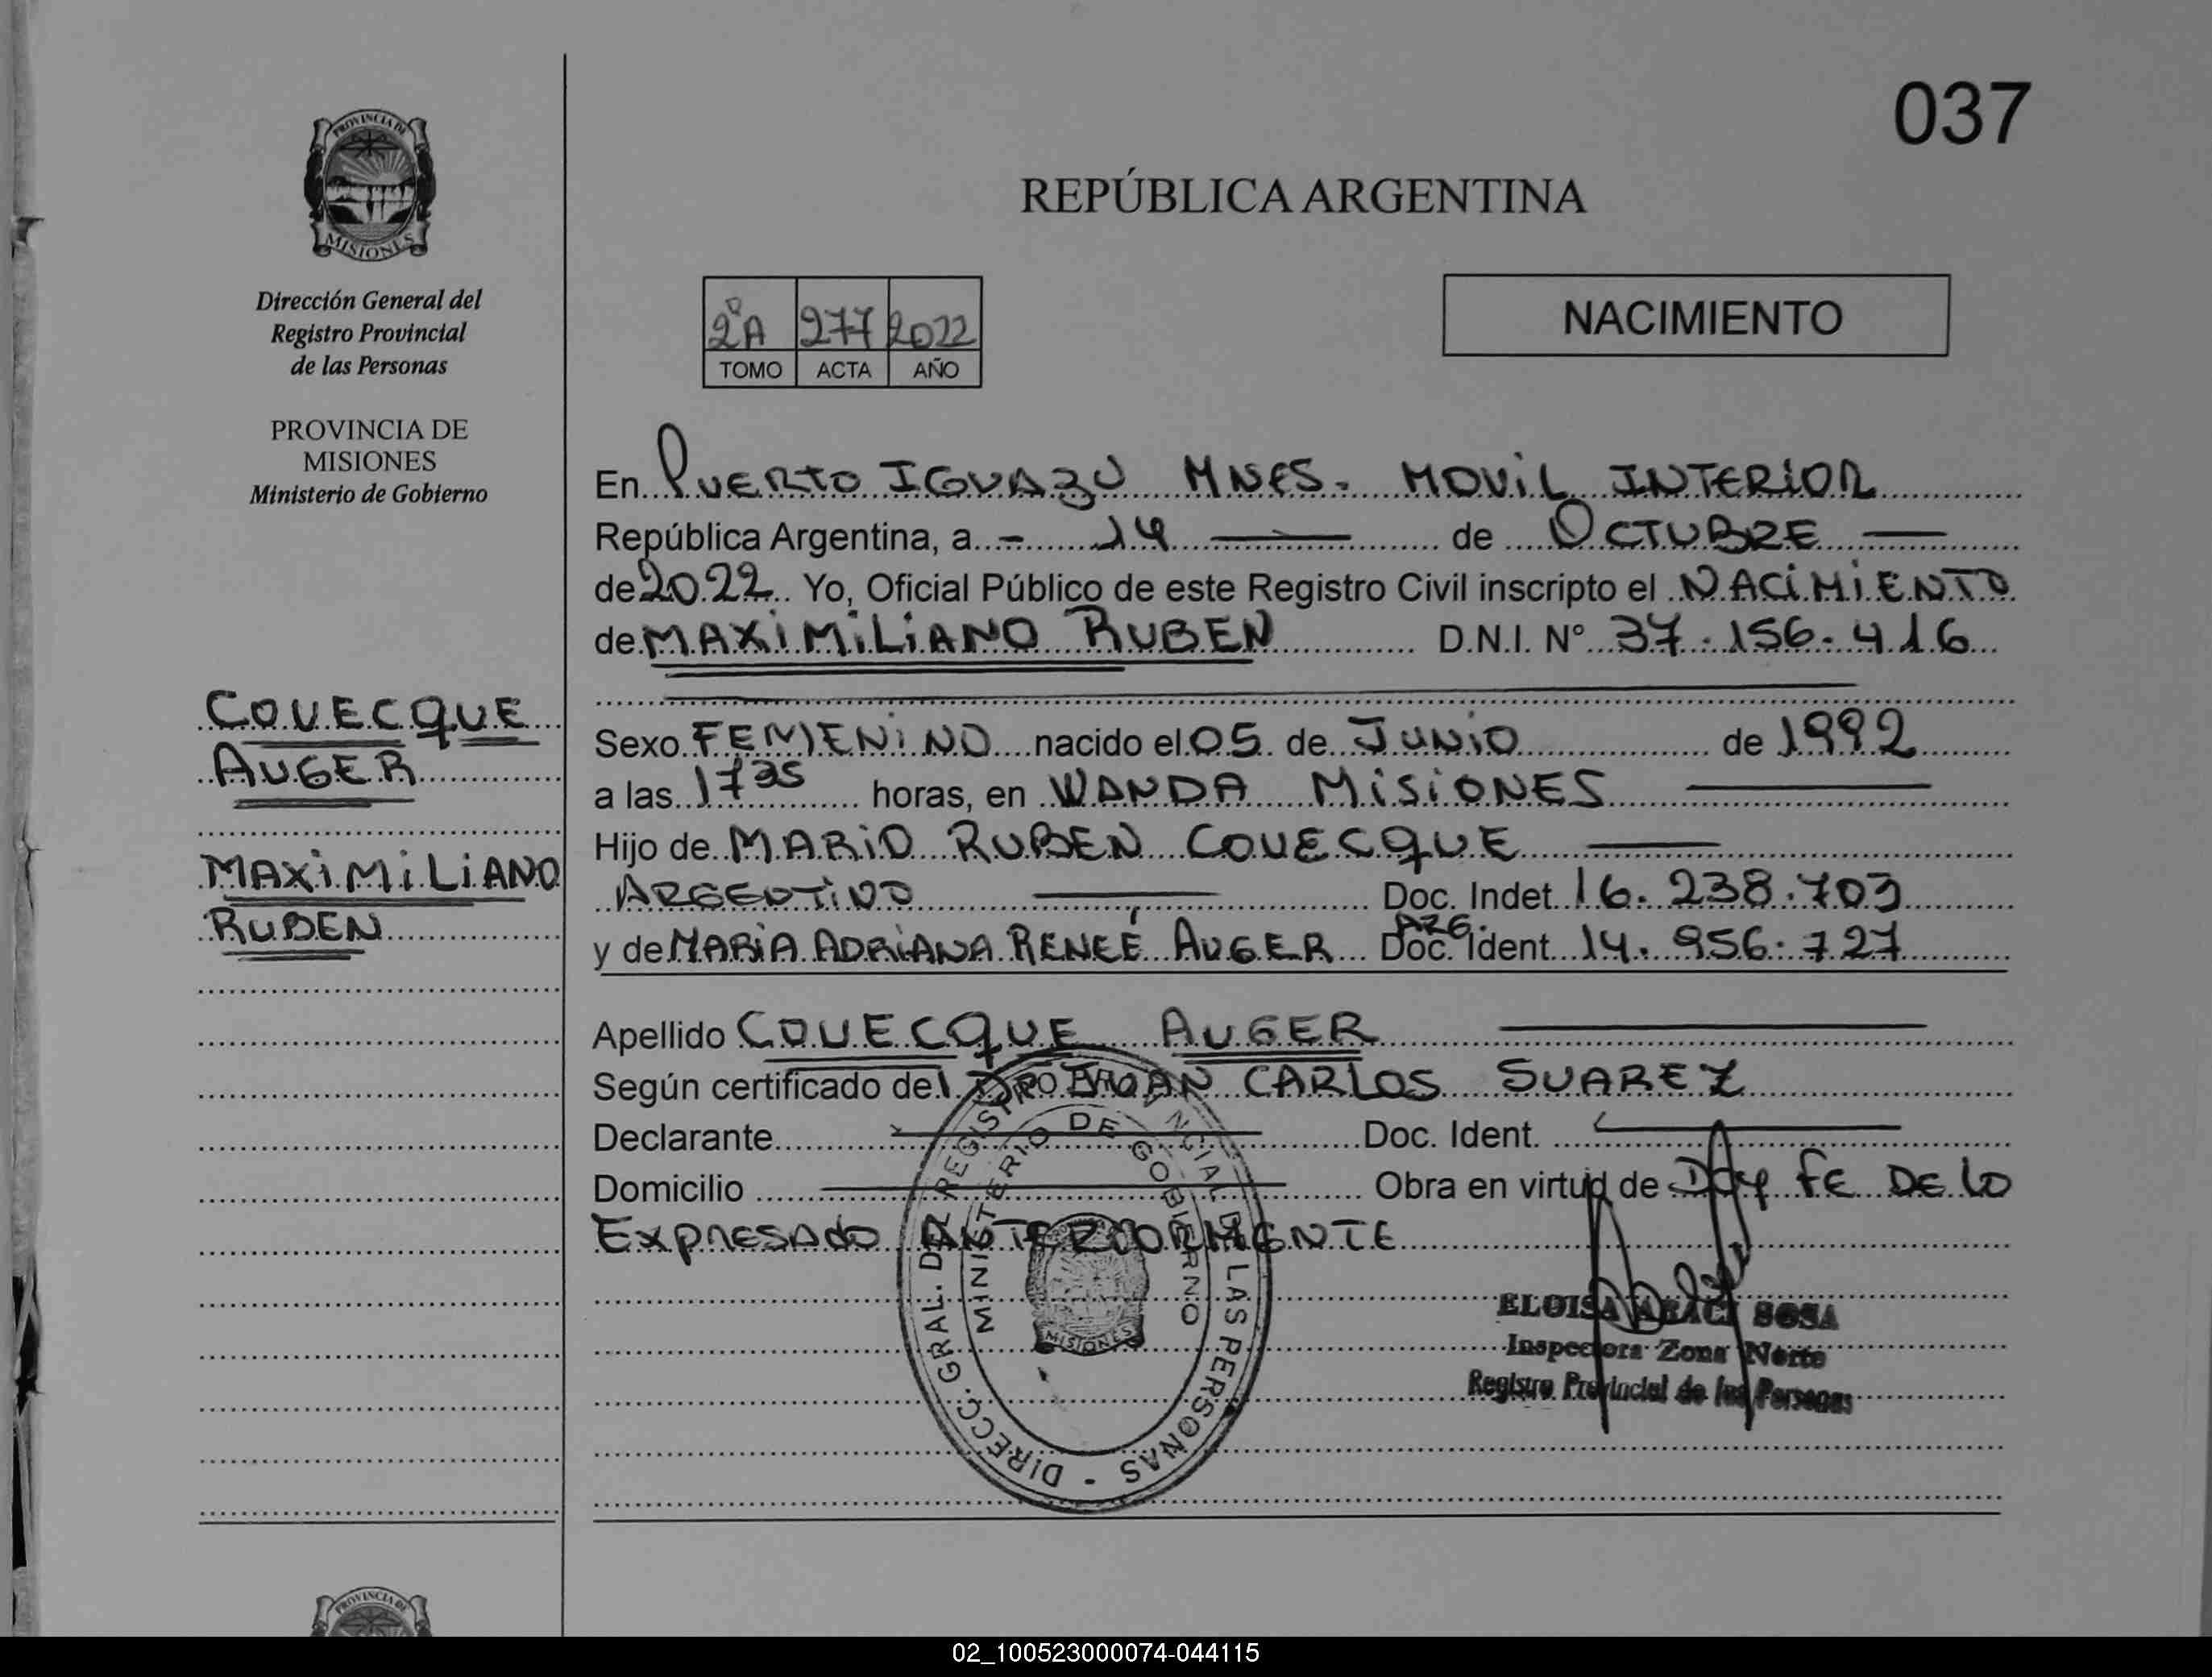 037
PROVINCIA DE
MISIONES
Dirección General del
Registro Provincial
de las Personas
PROVINCIA DE
MISIONES
Ministerio de Gobierno
COUECQUE
AUGER
MAXIMILIANO
RUBEN
REPÚBLICA ARGENTINA
2ºA 277 2022
TOMO ACTA AÑO
NACIMIENTO
En PUERTO IGUAZU MNES. MOVIL INTERIOR
República Argentina, a - 14 — de OCTUBRE —
de 2022 Yo, Oficial Público de este Registro Civil inscripto el NACIMIENTO
de MAXIMILIANO RUBEN D.N.I. Nº 37.156.416
Sexo FEMENINO nacido el 05 de JUNIO de 1992
a las 17 35 horas, en WANDA MISIONES —
Hijo de MARIO RUBEN COUECQUE —
ARGENTINO — Doc. Indet. 16.238.703
y de MARIA ADRIANA RENEÉ AUGER ARG. Doc. Ident. 14.956.727
Apellido COUECQUE AUGER —
Según certificado del DRO JUAN CARLOS SUAREZ
Declarante — Doc. Ident. —
Domicilio — Obra en virtud de DOY FE DE LO
EXPRESADO ANTERIORMENTE
DIRECC. GRAL. DEL REGISTRO PROVINCIAL DE LAS PERSONAS -
MINISTERIO DE GOBIERNO
MISIONES
ELOISA ARACI SOSA
Inspectora Zona Norte
Registro Provincial de las Personas
PROVINCIA DE
02_100523000074-044115